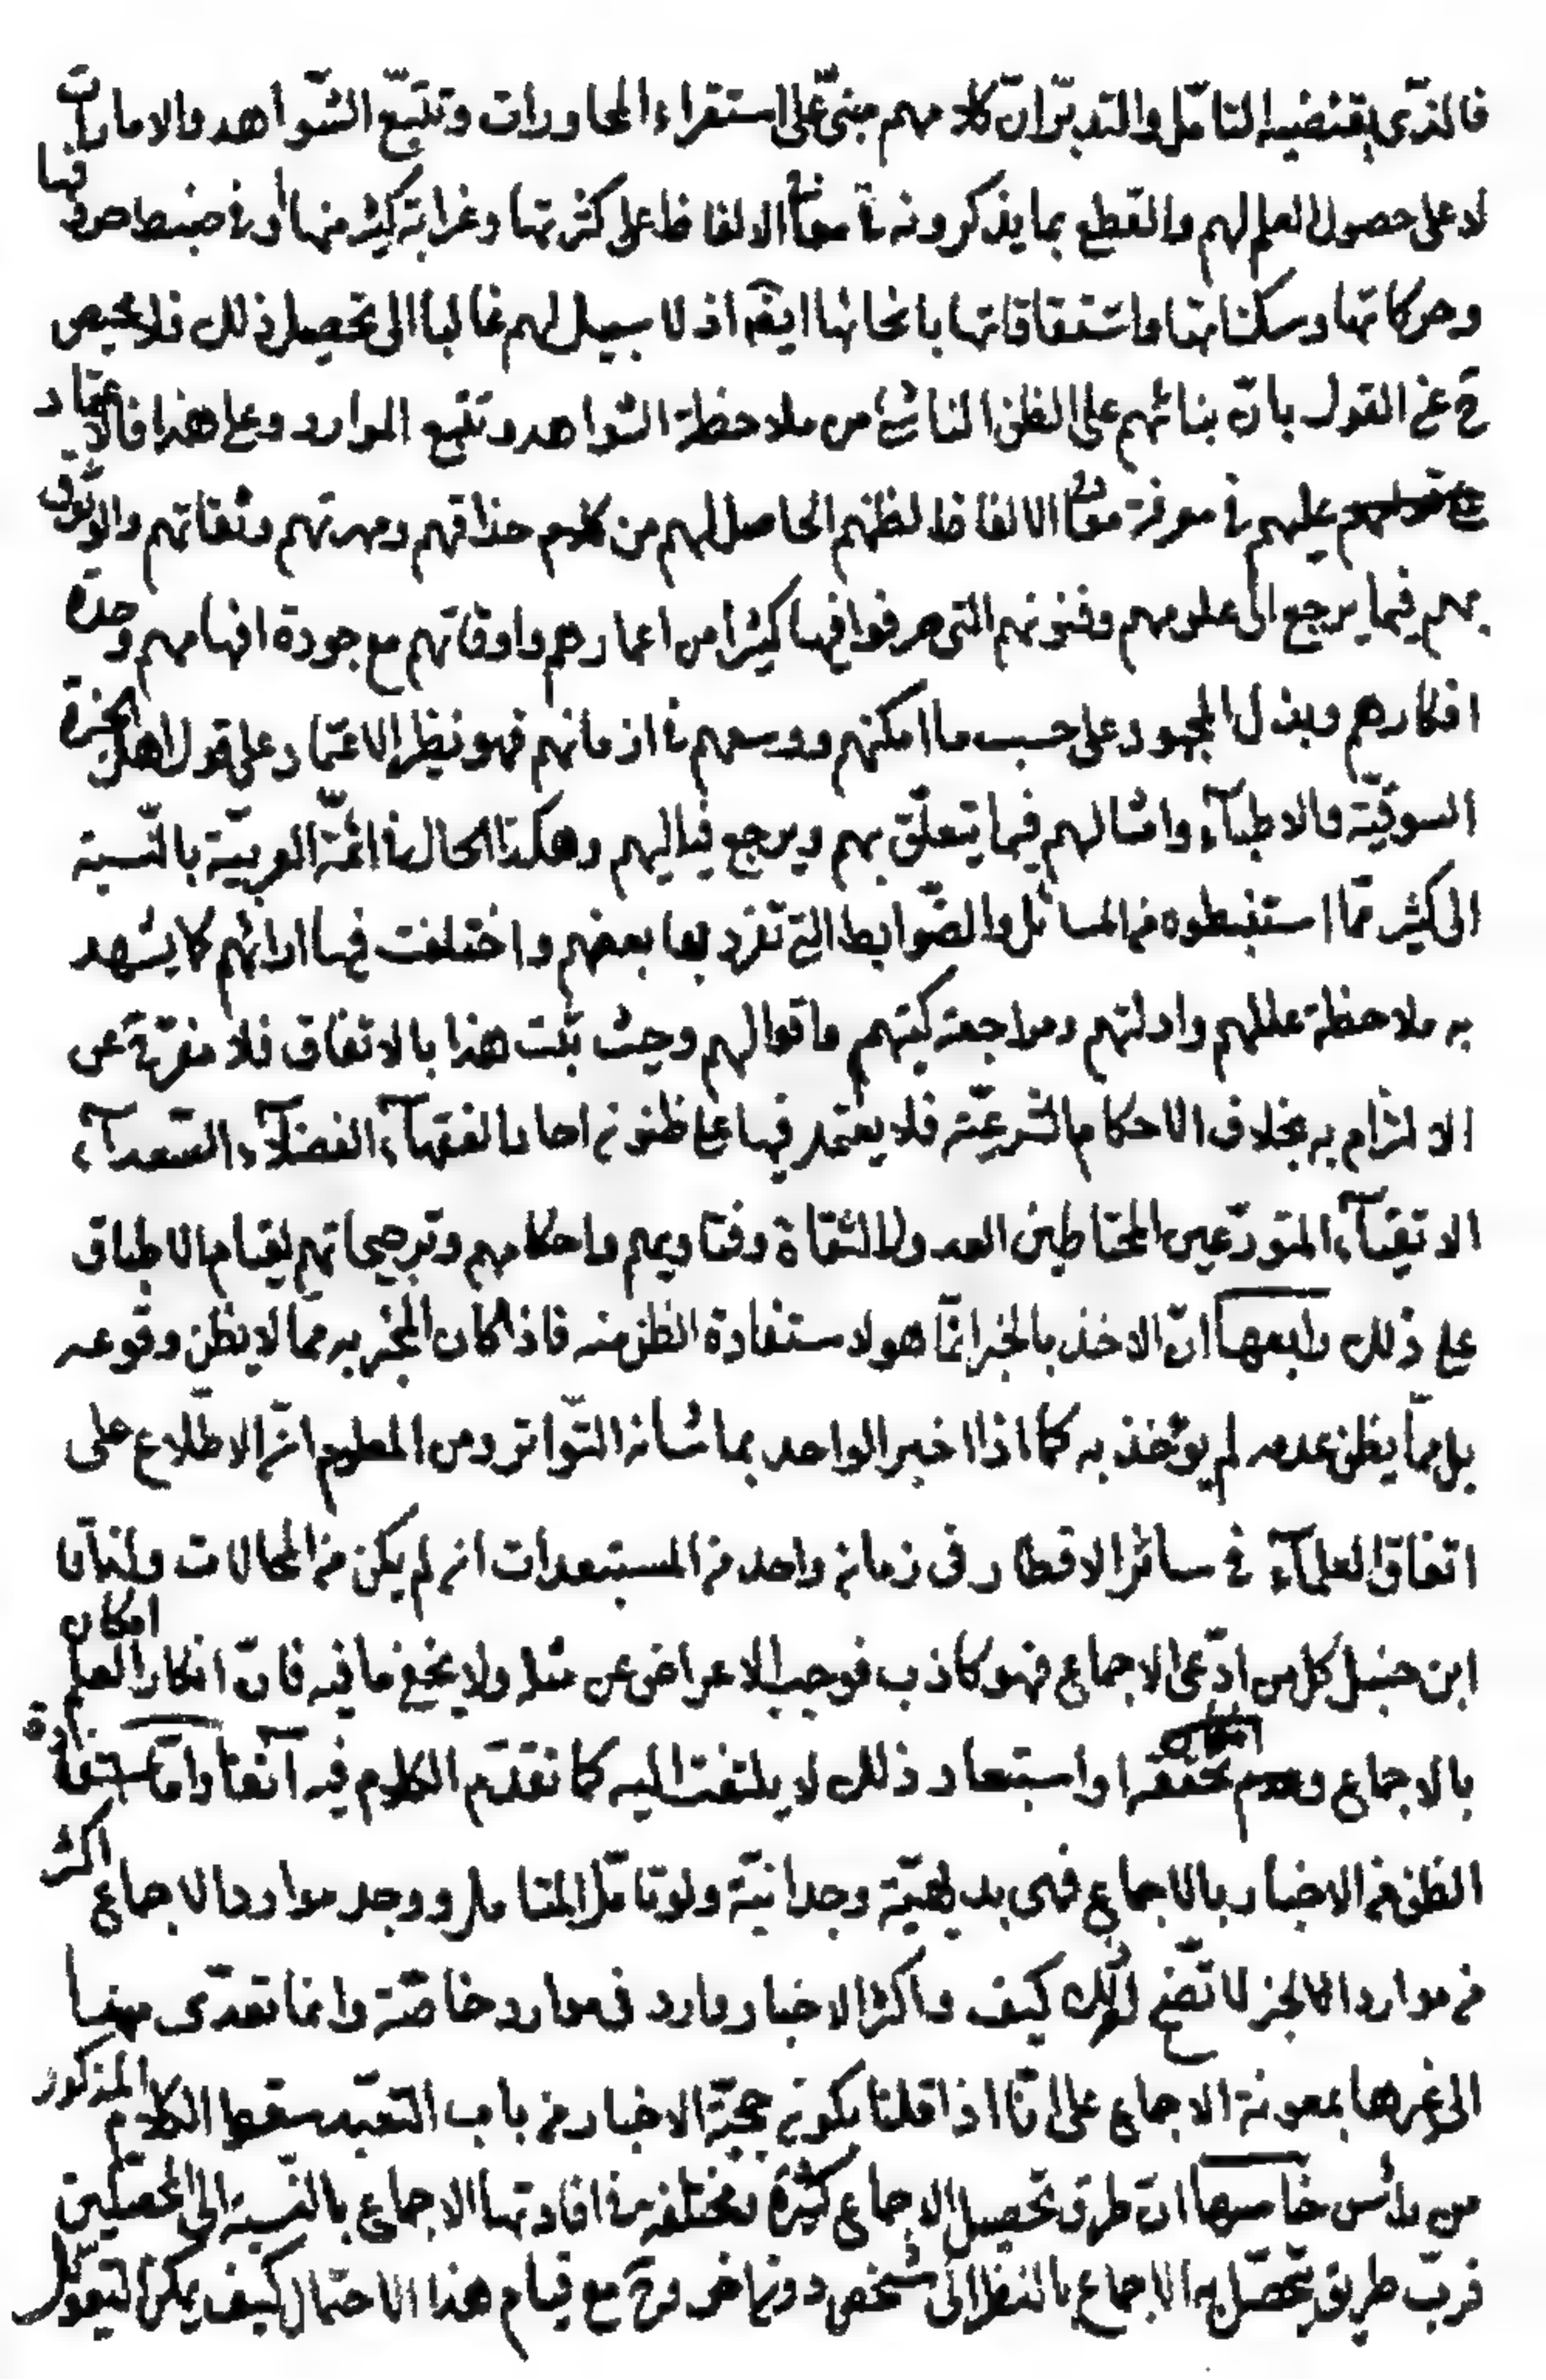 فالذّي يقتضيه التامّل والتدبّر انّ كلامهم مبنىّ على استقراء المحاورات وتتبّع الشّواهد والامارات
لا على حصول العلم لهم والقطع بما يذكرونه في معاني الالفاظ على كثرتها وغرابة كثير منها أو في ضبط حروفها
وحركاتها وسكناتها واشتقاقاتها بانحائها ايضۤ اذ لا سبيل لهم غالبا الى تحصيل ذلك فلا محيص
حۤ عن القول بانّ بنائهم على الظن الناشئ من ملاحظة الشواهد وتتبع الموارد وعلى هذا فالاعتماد
عليهم في معرفة معاني الالفاظ لظنهم الحاصل لهم من كلام حذاقهم ومهرتهم وثقاتهم والوثوق
بهم فيما يرجع الى علومهم وفنونهم التى صرفوا فيها كثيرا من اعمارهم واوقاتهم مع جودة افهامهم وحدة
افكارهم وبذل المجهود على حسب ما امكنهم ووسعهم في ازمانهم فهو نظير الاعتماد على قول اهل الخبرة
السوقيّة والاطبآء وامثالهم فيما يتعلّق بهم ويرجع فيه اليهم وهكذا الحال في ائمّة العربيّة بالنّسبة
الى كثير ممّا استنبطوه من المسائل والضّوابط التي تفرد بها بعضهم واختلفت فيها ارائهم كما يشهد
به ملاحظة عللهم وادلتهم ومراجعة كتبهم واقوالهم وحيث ثبت هذا بالاتفاق فلا مفرّ حۤ عن
الالتزام به بخلاف الاحكام الشرعيّة فلا يعتمد فيها على ظنون احاد الفقهآء الفضلآء السّعدآء
الاتقيآء المتورّعين المحتاطين العدول الثقاة وفتاويهم واحكامهم وترجيحاتهم لقيام الاطباق
على ذلك رابعها انّ الاخذ بالخبر انّما هو لاستفادة الظن منه فاذا كان المخبر به ممّا لا يظن وقوعه
بل ممّا يظن عدمه لم يؤخذ به كما اذا اخبر الواحد بما شانه التّواتر ومن المعلوم انّ الاطّلاع على
اتفاق العلمآء في سائر الاقطار فى زمان واحد من المستبعدات ان لم يكن من المحالات ولذا قال
ابن حنبل كل من ادّعى الاجماع فهو كاذب فوجب الاعراض عن مثله ولا يخفى ما فيه فانّ انكار امكان العلم
بالاجماع وامكان تحققه او استبعاد ذلك لا يلتفت اليه كما تقدّم الكلام فيه آنفا وامّا استفادة
الظن من الاخبار بالاجماع فهى بديهيّة وجدانيّة ولو تامّل المتامل ووجد موارد الاجماع اكثر
من موارد الخبر لاتّضح له ذلك كيف واكثر الاخبار وارد فى موارد خاصّة وانما تعدّى منها
الى غيرها بمعونة الاجماع على انّا اذا قلنا بكون حجيّة الاخبار من باب التعبّد سقط الكلام المذكور
من رأس خامسها انّ طرق تحصيل الاجماع كثيرة مختلفة في افادتها الاجماع بالنّسبة الى المحصّلين
فربّ طريق يحصّل به الاجماع بالنظر الى شخص دون اخر وحۤ مع قيام هذا الاحتمال كيف يمكن التعويل